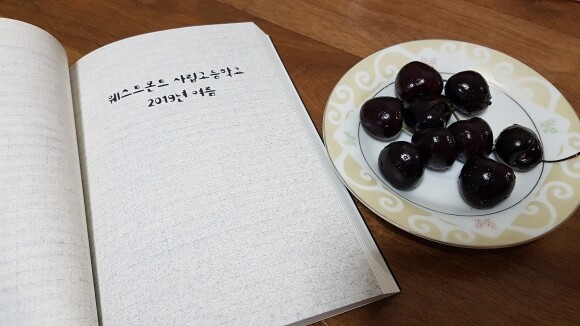 퀘스트몬트 사립고등학교
2019년 여름